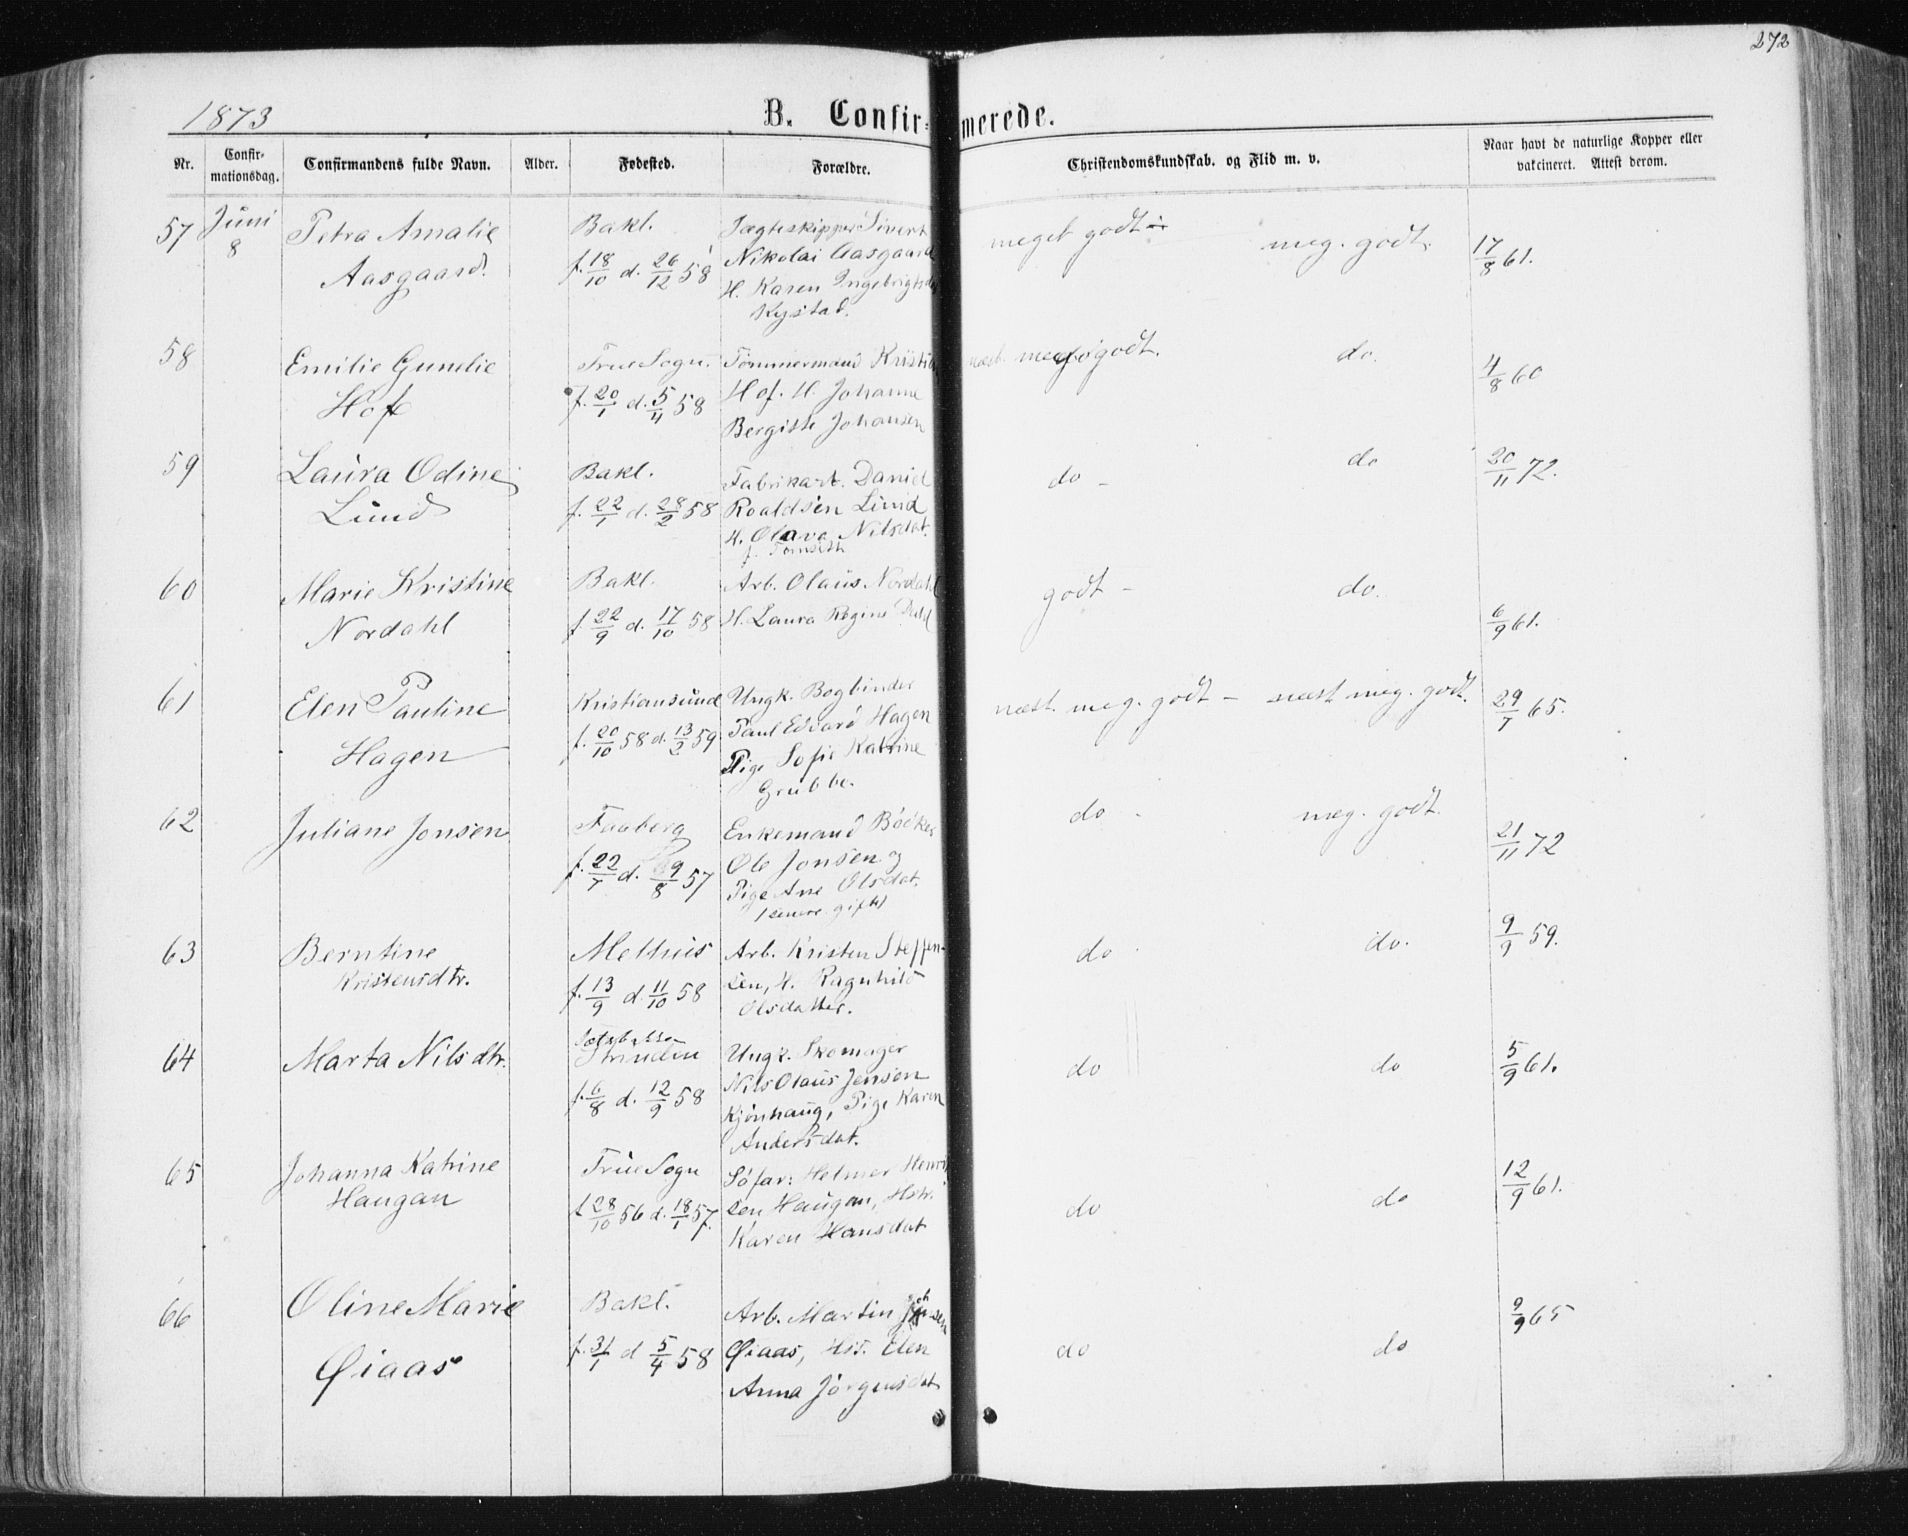 272
1873
B. Confir-merede.
Nr.
Confir-
mationsdag.
Confirmandens fulde Navn.
Alder.
Fødested.
Forældre.
Christendomskundskab. og Flid m. v.
Naar havt de naturlige Kopper eller
vakcineret. Attest derom.
57 Juni 8
Petra Amalie
Aasgaard.
Bakl.
f. 18/10 d. 26/12 58
Jægteskipper Sivert
Nikolai Aasgaard
H. Karen Ingebrigtsdat
Kystad.
meget godt
meg. godt.
17/8 61.
58
Emilie Gunelie
Hof
Frue Sogn.
f. 20/1 d. 5/4 58
Tømmermand
Hof. H. Johanne
Bergitte Johansen
meg godt.
do.
4/8 60
59
Laura Odine
Lund
Bakl.
f. 22/1 d. 28/2 58
Fabrikarb. Daniel
Roaldsen Lund
H. Olava Nilsdat.
do -
do
20/11 72.
60
Marie Kristine
Nordahl
Bakl.
f. 22/9 d. 17/10 58
Arb. Olaus Nordahl
H. Laura Regine
godt -
do.
6/9 61.
61
Elen Pauline
Hagen
Kristiansund
f. 20/10 58 d. 13/2 59
Ungk. Bogbinder
Paul Edvard Hagen
Pige Sofie Katrine
Grubbe.
næst. meg. godt -
næst meg. godt.
29/7 65.
62
Juliane Jonsen
Faaberg
f. 22/7 d. 9/8 57
Enkemand Bödker
Ole Jonsen og
Pige Ane Olsdat.
senere gifte
do
meg. godt.
21/11 72
63
Berntine
Kristensdtr.
Melhus
f. 13/9 d. 11/10 58
Arb. Kristen Steffen-
sen, H. Ragnhild
Olsdatter.
do
do.
9/9 59.
64
Marta Nilsdtr.
Strinden
f. 6/8 d. 12/9 58
Ungk. Skomager
Nils Olaus Jensen
Kjönhaug, Pige Karen
Andersdat.
do
do
5/9 61.
65
Johanna Katrine
Haugan
Frue Sogn
f. 28/10 56 d. 18/1 57.
Söfar: Helmer Henrik
sen Haugan, Hstr.
Karen Hansdat
do
do
12/9 61.
66
Oline Marie
Øiaas
Bakl.
f. 31/1 d 5/4 58
Arb. Martin
Øiaas, Hst. Elen
Anna Jörgensdat
do
do
9/9 65